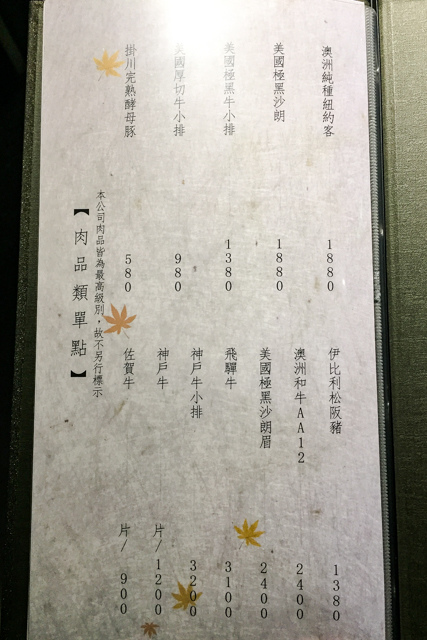 澳洲純種紐約客 1880
美國極黑沙朗 1880
美國極黑牛小排 1380
美國厚切牛小排 980
掛川完熟酵母豚 580
伊比利松阪豬 1380
澳洲和牛AA12 2400
美國極黑沙朗眉 2400
飛驒牛 3100
神戶牛小排 3200
神戶牛 片/1200
佐賀牛 片/900
本公司肉品皆為最高級別，故不另行標示
【肉品類單點】